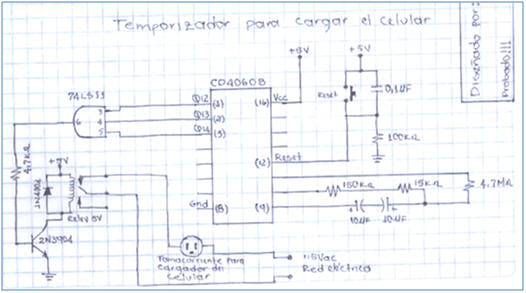 Temporizador para cargar el celular
Diseñado por:
Probado!!!
+5V
+5V
CD4060B
74LS11
Q12 (1)
Q13 (2)
Q14 (3)
(16) Vcc
Reset
0,1uF
100KΩ
(12) Reset
6
3
4
5
4.7KΩ
+5V
1N4004
Relay 5V
2N3904
Gnd (8)
(9)
150KΩ
15KΩ
4.7MΩ
10uF
10uF
Tomacorriente para
cargador de
celular
115Vac
Red eléctrica